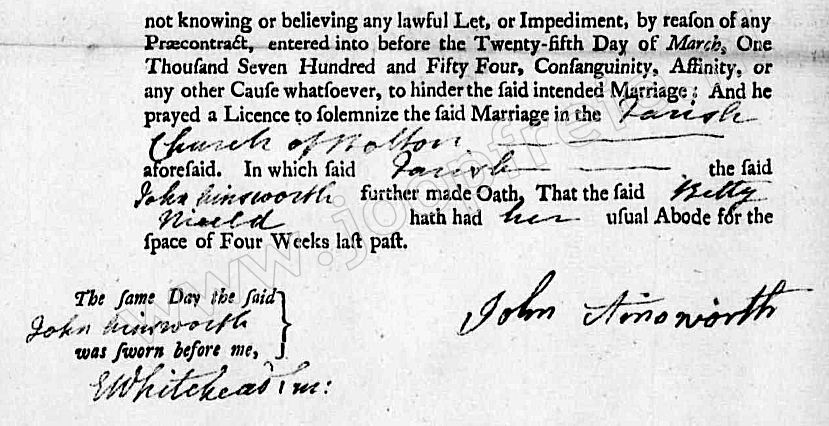 not knowing or believing any lawful Let, or Impediment, by reaſon of any
Præcontract, entered into before the Twenty-fifth Day of March, One
Thouſand Seven Hundred and Fifty Four, Conſanguinity, Affinity, or
any other Cauſe whatſoever, to hinder the ſaid intended Marriage: And he
prayed a Licence to ſolemnize the ſaid Marriage in the Parish
Church of Bolton
aforeſaid. In which ſaid Parish the ſaid
John Ainsworth further made Oath, That the ſaid Betty
Nield hath had her uſual Abode for the
ſpace of Four Weeks laſt paſt.
The ſame Day the ſaid
John Ainsworth
was ſworn before me,
John Ainsworth
E Whitehead